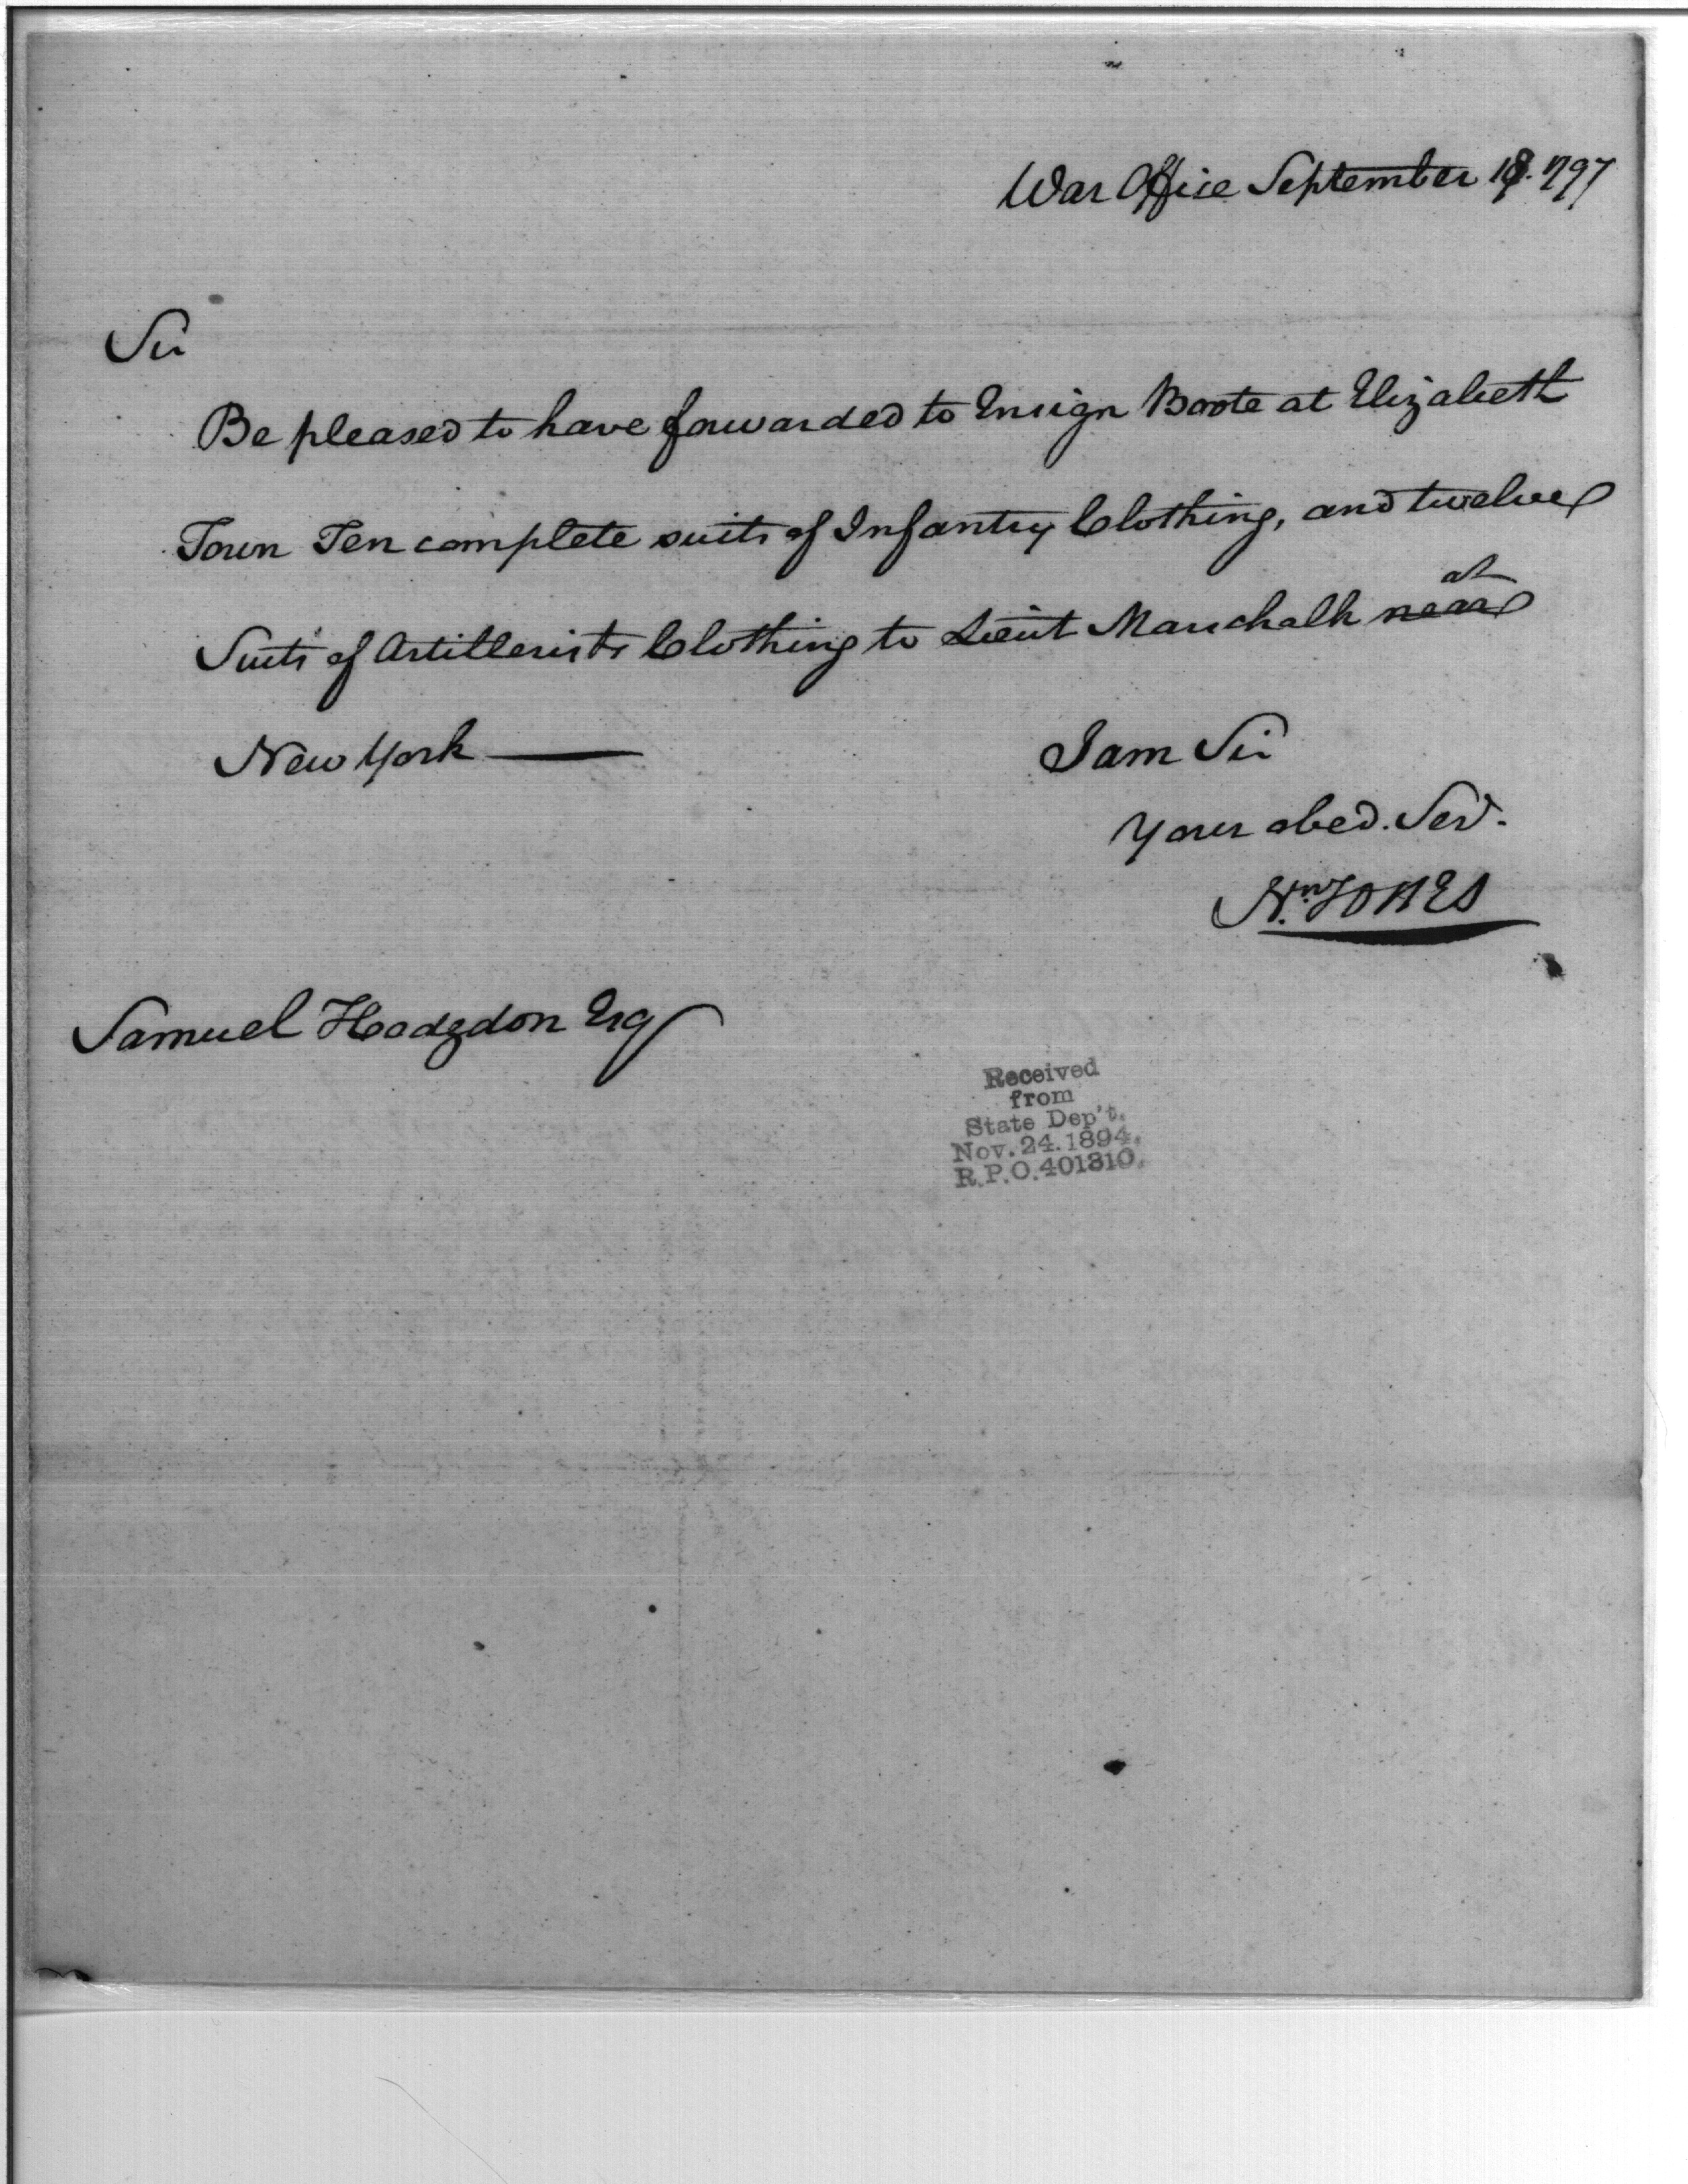 War Office September 18. 1797
Sir
Be pleased to have forwarded to Ensign Boote at Elizabeth
Town Ten complete suits of Infantry Clothing, and twelve
at
Suits of Artillerists Clothing to Lieut Marschalk near
New York
I am Sir
Your obed. Serv.
Nn. JONES
Samuel Hodgdon Esq
Received
from
State Dep't.
Nov. 24. 1894.
R.P.O. 401310.